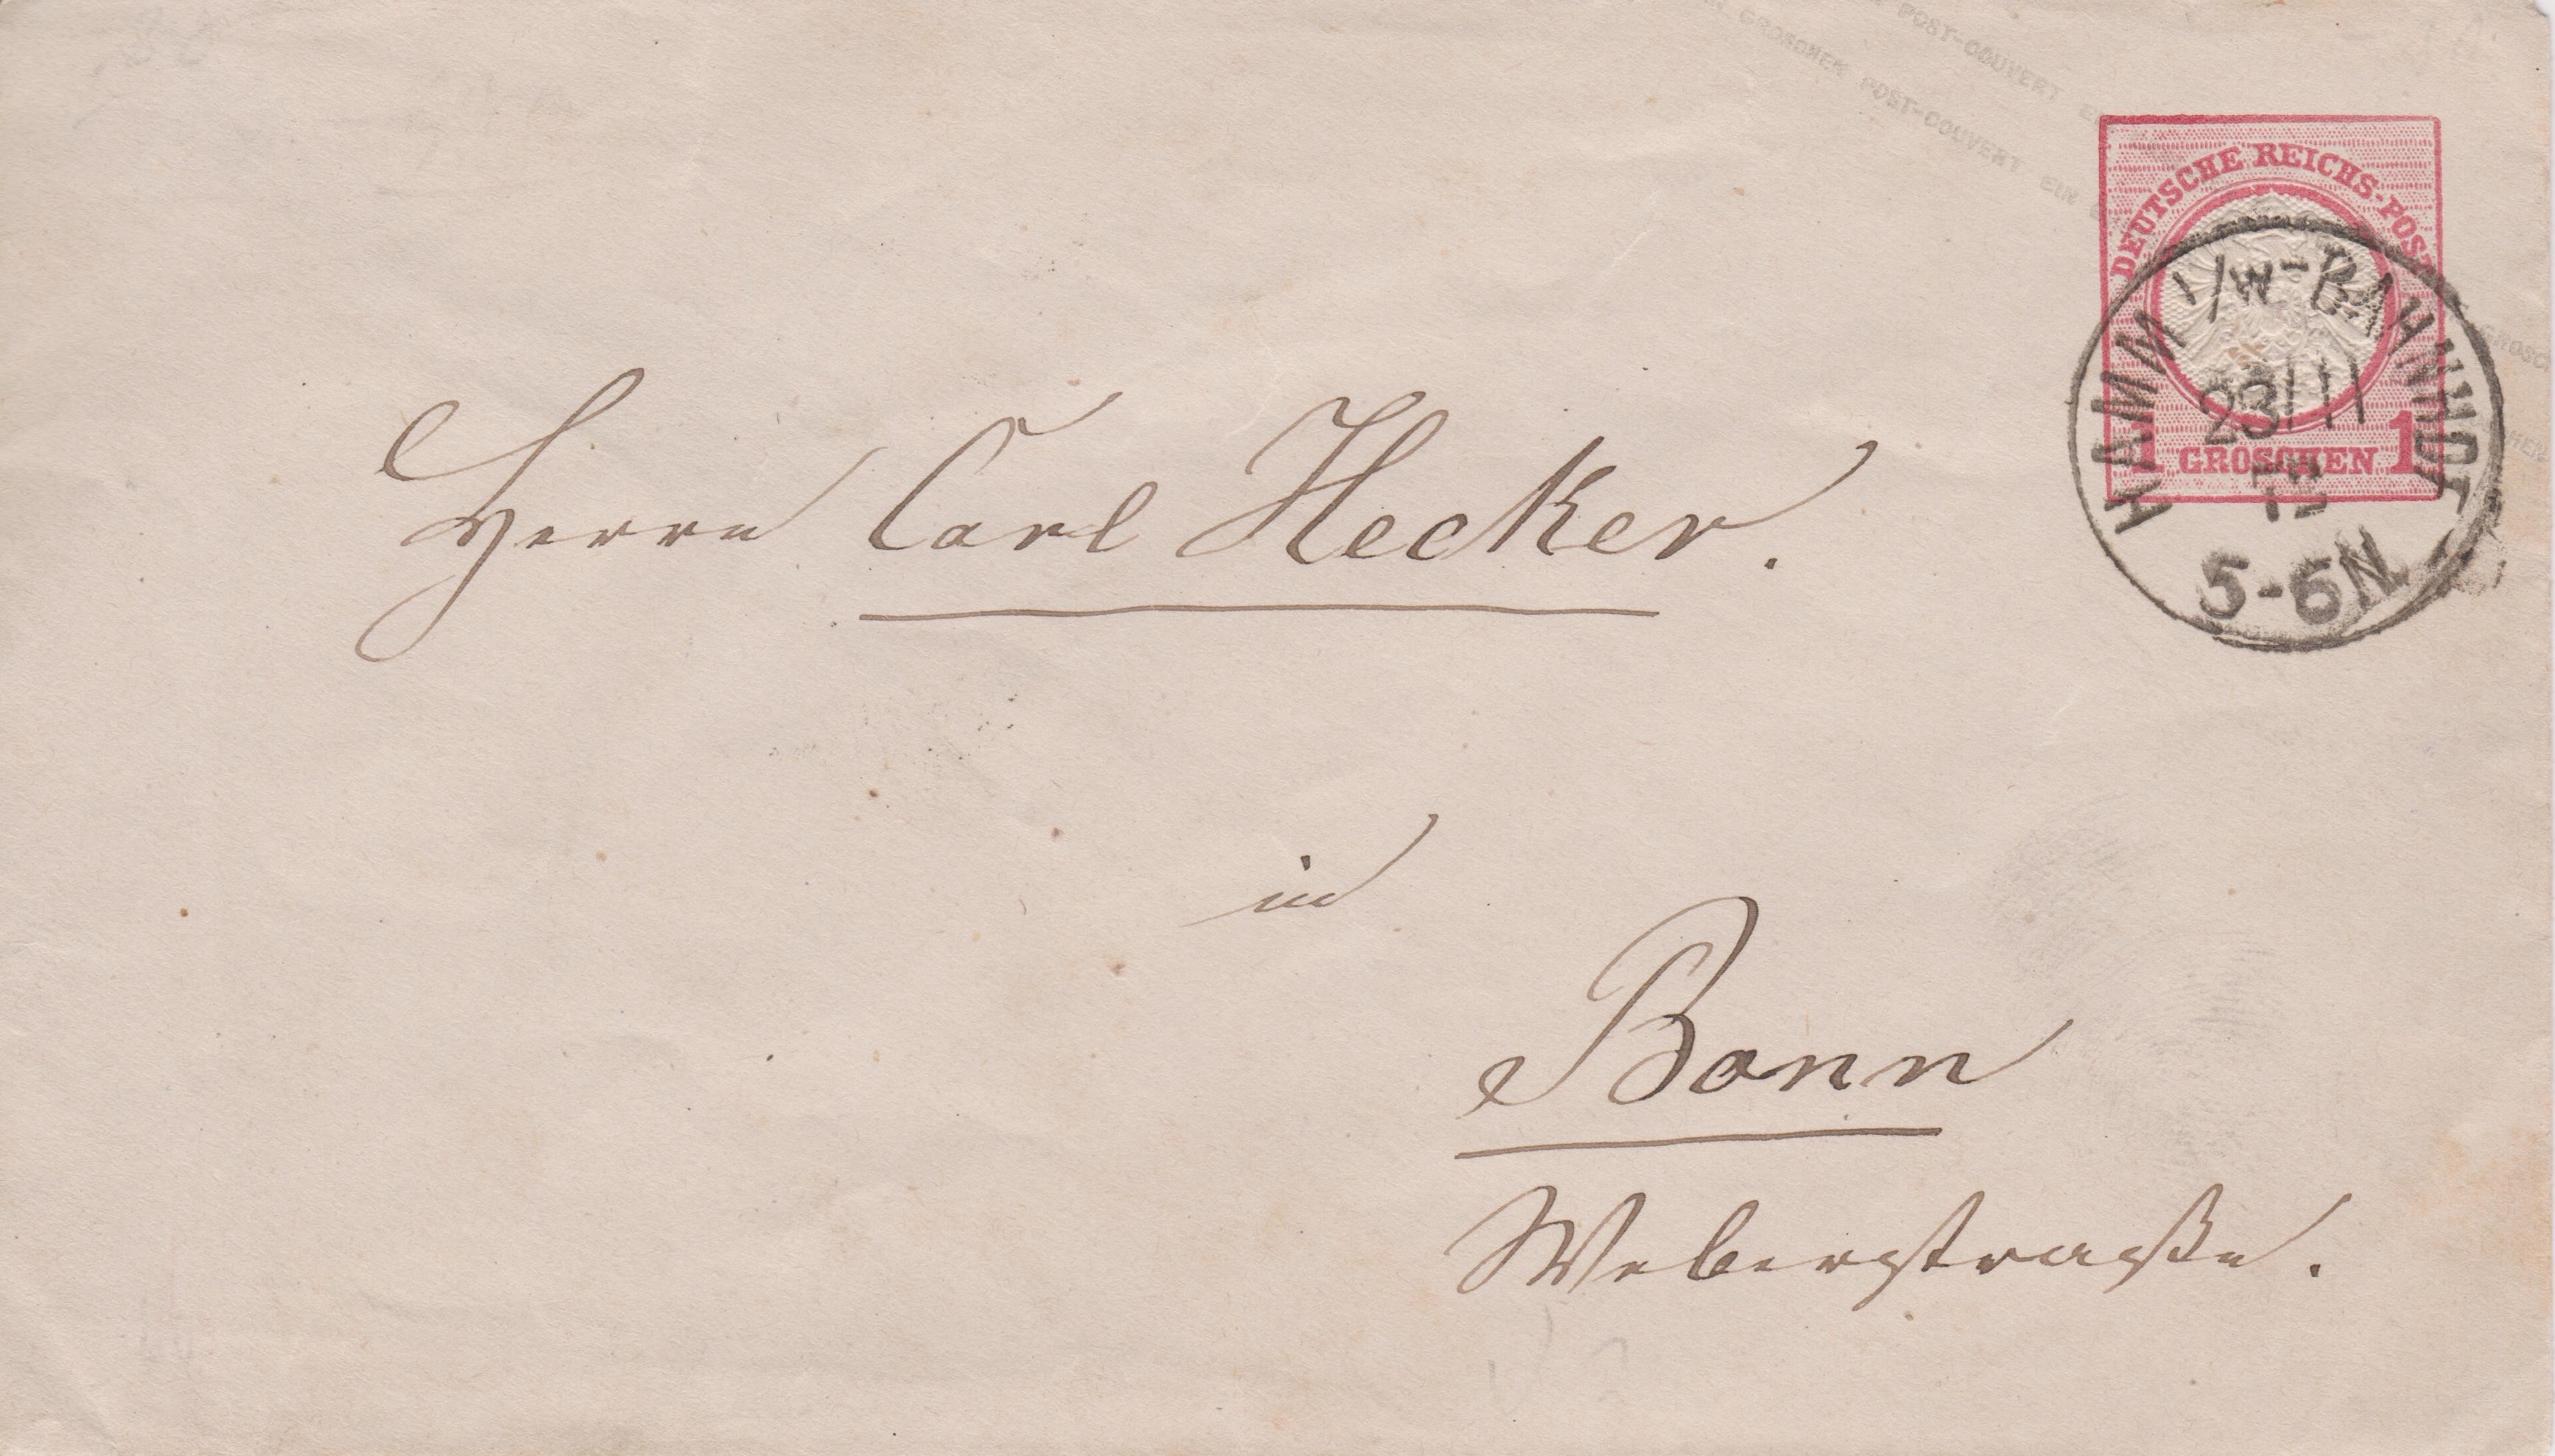 POST-COUVERT
GROSCHEN POST-COUVERT EIN
DEUTSCHE REICHS-POST
1 GROSCHEN 1
HAMM I/W-BAHNHOF
23/11
5-6N
Herrn Carl Hecker.
in
Bonn
Weberstraße.